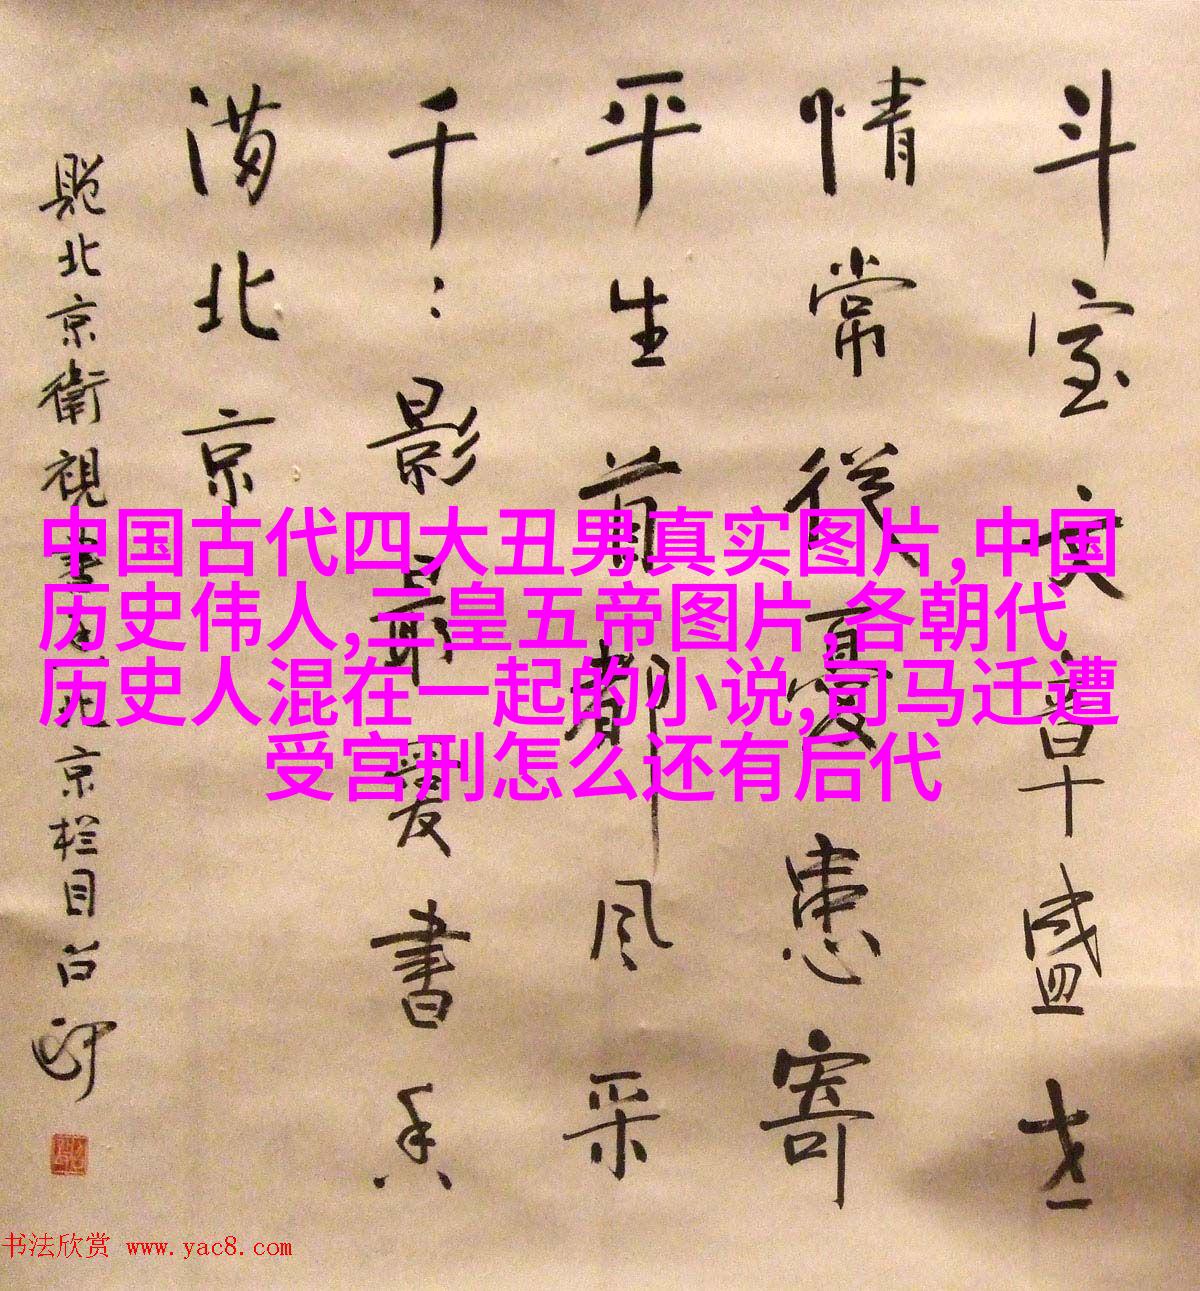 斗室文章盛世
情常從憂患寄
平生首都風采
千:影最愛書香
满北京
題北京衛視書香北京栏目
中国古代四大丑男真实图片,中国
历史伟人,三皇五帝图片,各朝代
历史人混在一起的小说,司马迁遭
受宫刑怎么还有后代
书法欣赏 www.yac8.com